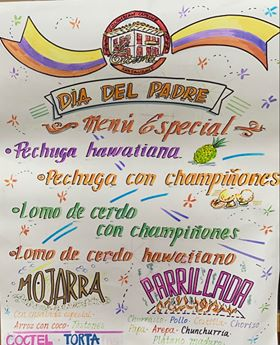 DÍA DEL PADRE
Menú Especial
Pechuga hawaiiana
Pechuga con champiñones
Lomo de cerdo
con champiñones
Lomo de cerdo hawaiiano
MOJARRA
Con ensalada especial
Arroz con coco - Patacones
PARRILLADA
Churrasco - Pollo - Costilla - Chorizo
Papa - Arepa - Chunchurria
Plátano maduro
COCTEL TORTA